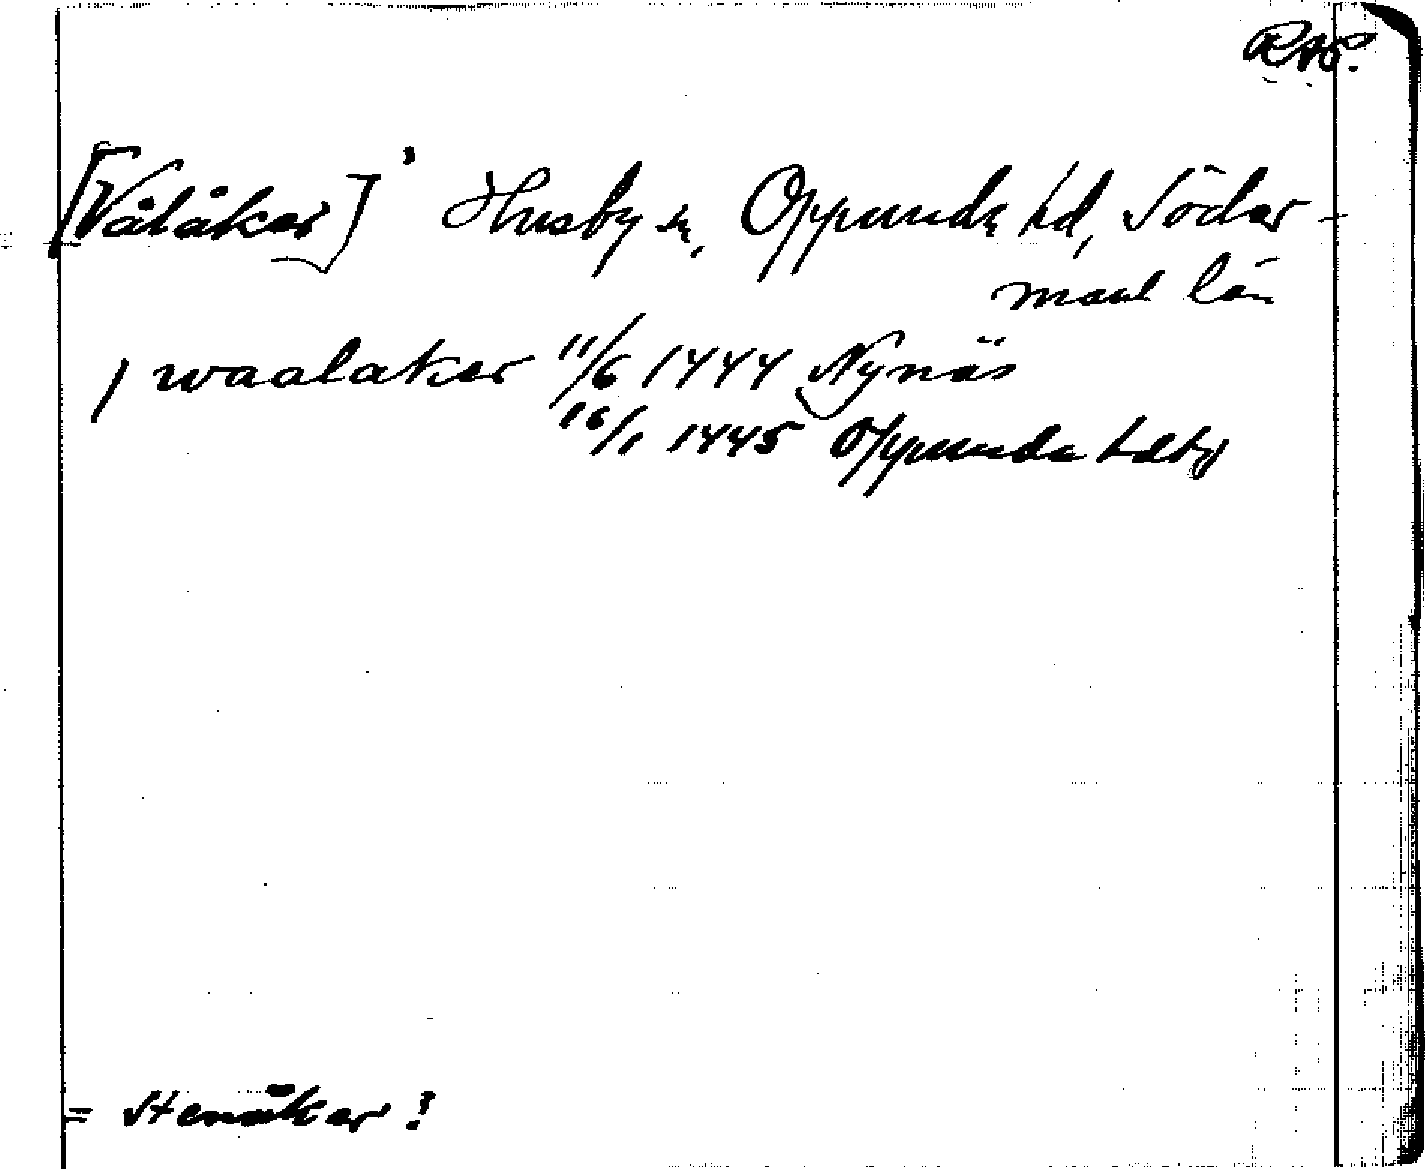 RAP.
[Vålåker]' Husby sn, Oppunda hd, Söder-
manl län
j waalaker 11/6 1444 Nynäs
16/1 1445 Oppunda hdtg
= Stenåker?